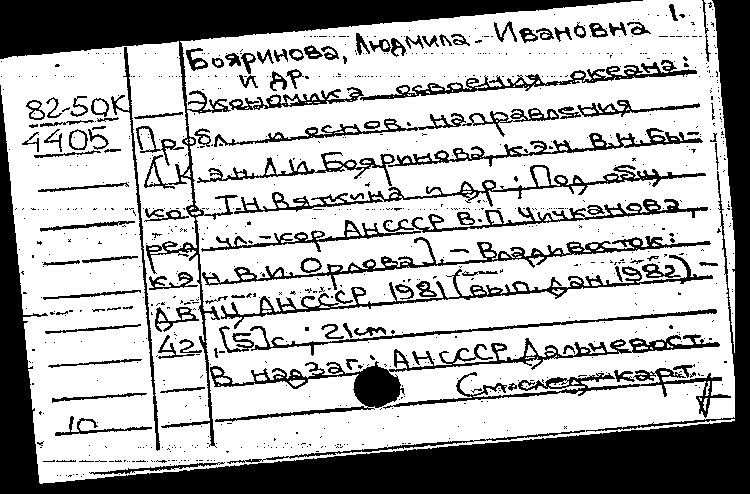 1.
Бояринова, Людмила Ивановна
и др.
82-50К Экономика освоения океана:
4405 Пробл. и основ. направления
[К.э.н. Л.И. Бояринова, к.э.н. В.Н. Бы-
ков, Т.Н. Вяткина и др.; Под общ.
ред. чл.-кор. АНСССР В.П. Чичканова,
к.э.н. В.И. Орлова]. – Владивосток:
ДВНЦ АНСССР, 1981 (вып. дан. 1982). –
421, [5] с.; 21 см.
В надзаг.: АНСССР. Дальневост.
См. след. карт.
10